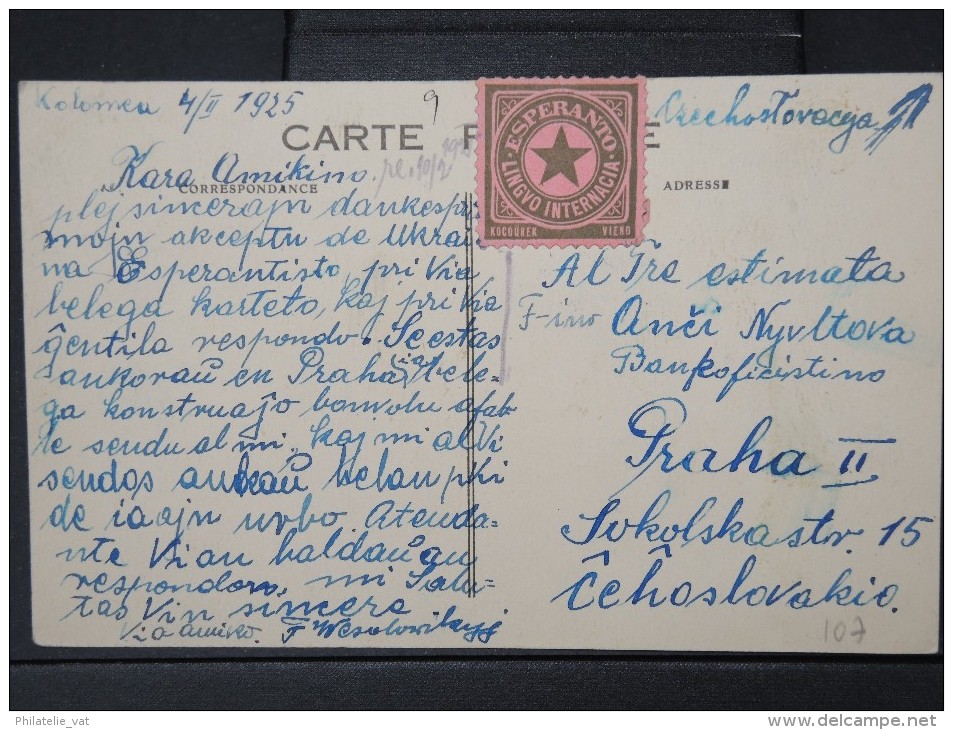 Kolomea 4/II 1925
9
Czechostovacya
CARTE
CORRESPONDANCE
ADRESSE
ESPERANTO
LINGVO INTERNACIA
KOCOUREK VIENO
Kara Amikino.
plej sincerajn dankespri
mojn akceptu de Ukrai
na Esperantisto, pri Via
belega karteto, kaj pri Via
ĝentila respondo. Se estas
ankoraŭ en Praha iaj bele=
ga konstruaĵo bonvolu afab
le sendu al mi, kaj mi al Vi
sendos ankaŭ belan
de iaajn urbo. Atenda=
nte Vian baldaŭan
respondon, mi Salu=
tas Vin sincere.
Via amiko. F
Al Tre estimata
F-ino Anĉi Nyvltova
Bankoficistino
Praha II
Sokolska str. 15
Ĉeĥoslovakio.
107
Philatelie_vat
www.delcampe.net